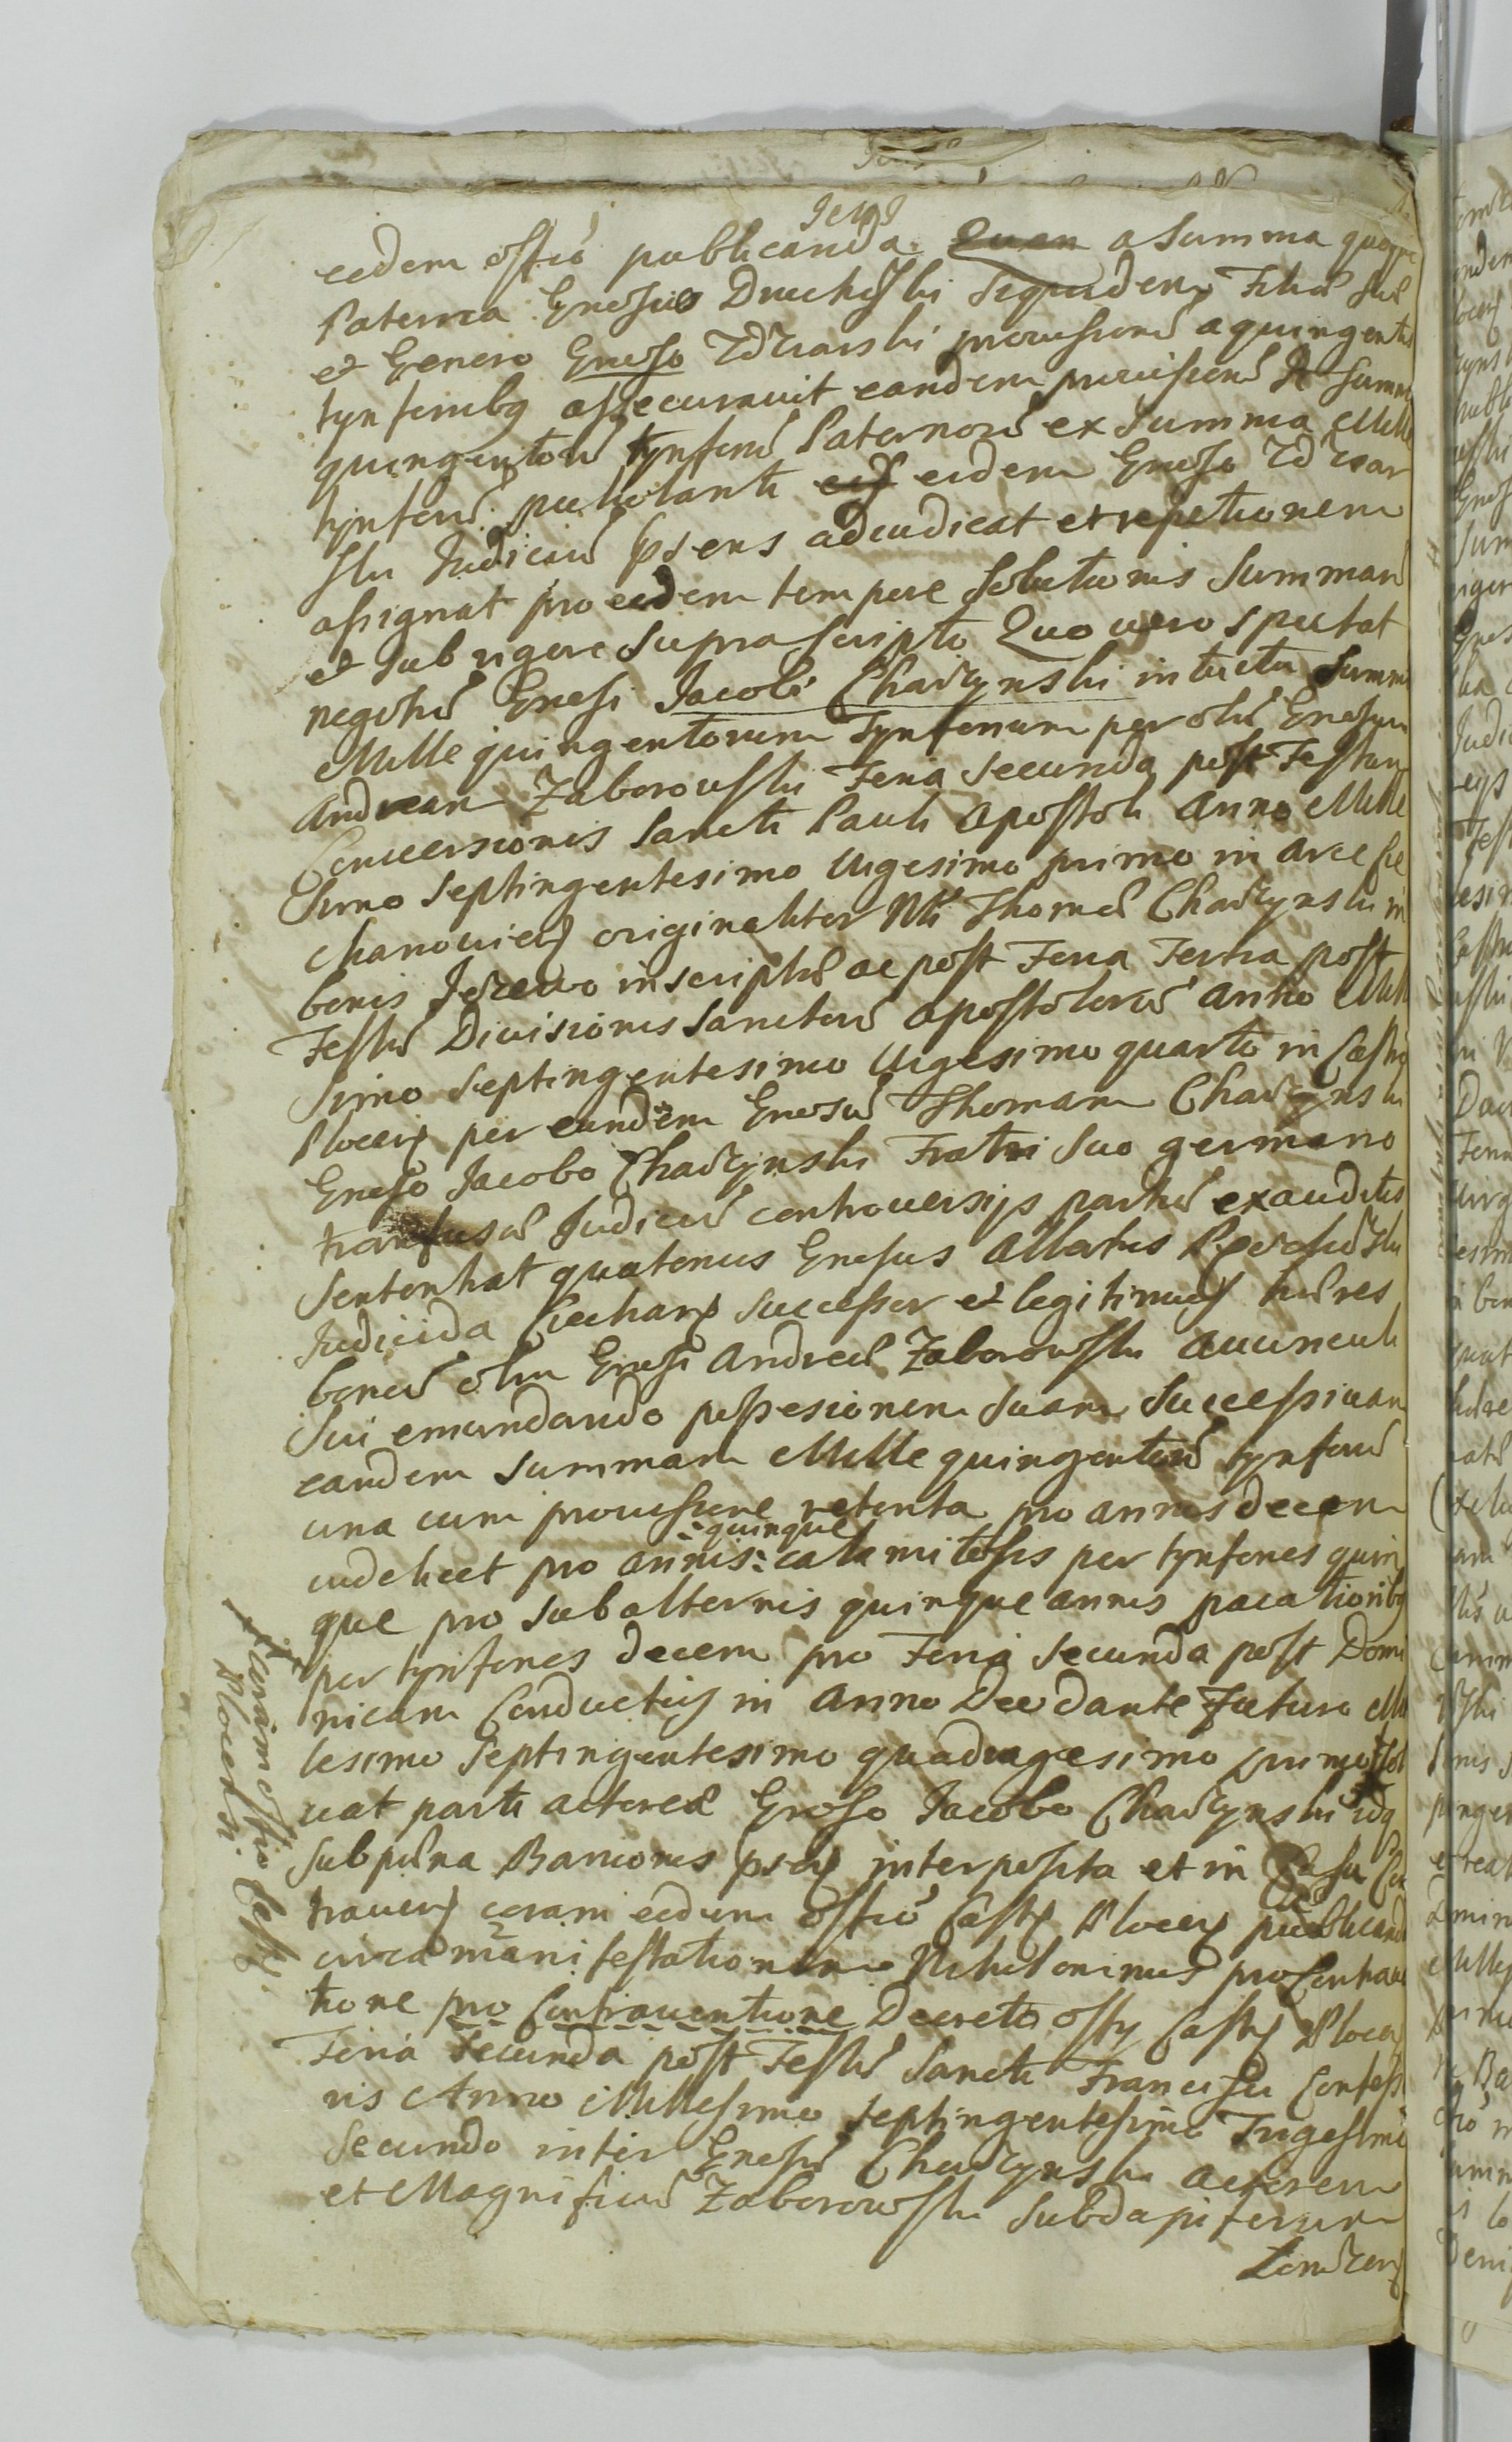 eidem offĩo publicanda. Quan a Summa quoque
Paterna Gnosus Druchoski siquidem Filiæ suæ
et Genero Gnoso Zdrarski provisionẽ a quingentis
tynfonibg assecuravit eandem provisionẽ a Sum̃a
quingentorũ tynfonũ Paternorũ ex Summa Mille
tynfonũ pullulanti eidem Gnoso Zdzar
ski Judiciũ psens adiudicat et repetitionem
assignat pro eodem tempore solutionis Summarũ
et sub rigore suprascripto Quo vero spectat
negotiũ Gnosi Jacobi Chądzynski intuitu Summæ
Mille quingentorum Tynfonum per olim Gnosum
Andream Zaborowski Feria secunda post Festum
Conversionis Sancti Pauli Apostoli Anno Mille
simo Septingentesimo Vigesimo primo in Arce Cie
chanovien originaliter Thomæ Chądzynski in
bonis inscriptæ ac post Feria Tertia post
Festũ Divisionis Sanctorũ Apostolorũ Anno Mille
simo Septingentesimo Vigesimo quarto in Castro
Plocen per eundem Gnosũ Thomam Chądzynski
Gnoso Jacobo Chądzynski Fratri suo germano
transfusæ Judiciũ controversijs partiũ exauditis
Sententiat quatenus Gnosus Albertus
Judicida Ciechan successor et legitimus hæres
bonorũ olim Gnosi Andreæ Zaborowski Avunculi
sui emundando possesionem suam successivam
eandem Summam Mille quingentorũ tynfonũ
una cum provisione retenta pro annis decem
videlicet pro annis :quinque: calamitosis per tynfones quin
que pro subalternis quinque annis pacatioribg
per tynfones decem pro Feria secunda post Domi
nicam Conductus in Anno Deo dante futuro Mil
lesimo Septingentesimo quadragesimo primo sol
vat parti actoreæ Gnoso Jacobo Chądzynski idq
sub pæna Banionis psen interposita et in Casu Con
traven coram eodem offĩo Cast Plocen publicanda
circa manifestationem Nihilominus pro Contraven
tione pro Contraventione Decreto offij Cast Plocen
Feria Secunda post Festũ Sancti Francisci Confesso
ris Anno Millesimo septingentesimo Trigesimo
Secundo inter Gnosũ Chądzynski actorem
et Magnificũ Zaborowski Subdapiferum
coram offĩo Cast
Plocen